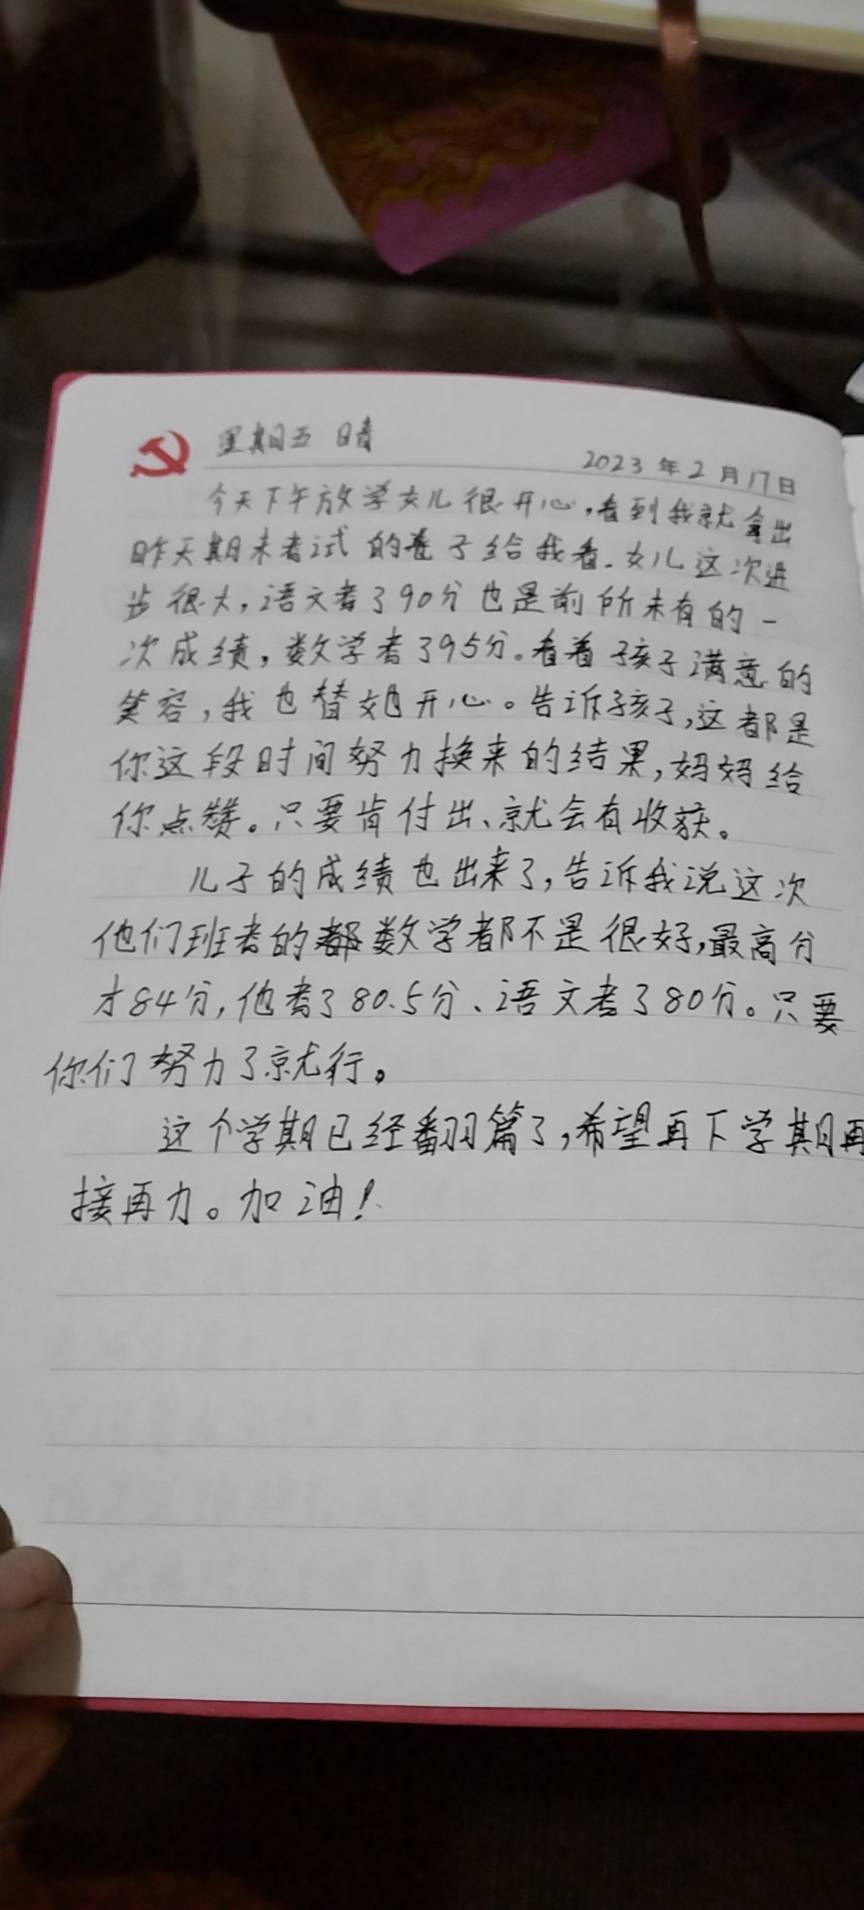 星期五 晴
2023年2月17日
今天下午放学女儿很开心,看到我就拿出
昨天期末考试的卷子给我看.女儿这次进
步很大,语文考了90分也是前所未有的一
次成绩,数学考了95分。看着孩子满意的
笑容,我也替她开心。告诉孩子,这都是
你这段时间努力换来的结果,妈妈给
你点赞。只要肯付出、就会有收获。
儿子的成绩也出来了,告诉我说这次
他们班考的数学都不是很好,最高分
才84分,他考了80.5分、语文考了80分。只要
你们努力了就行。
这个学期已经翻羽篇了,希望再下学期再
接再力。加油!